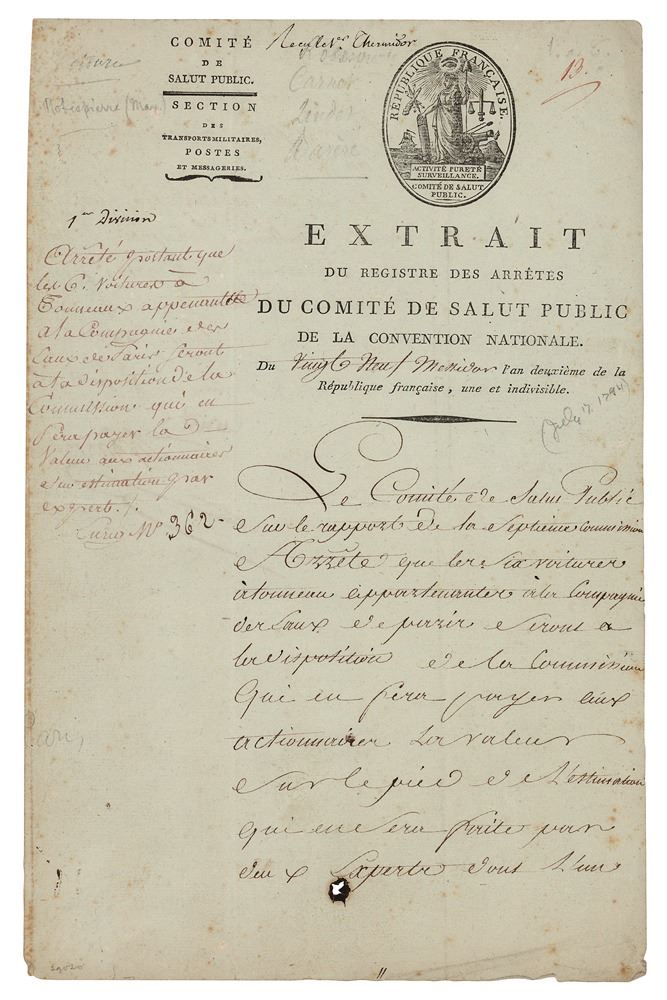 COMITÉ
DE
SALUT PUBLIC.
SECTION
DES
TRANSPORTS MILITAIRES,
POSTES
ET MESSAGERIES.
Thermidor
Carnot
Lindet
Robespierre (Max.)
13.
RÉPUBLIQUE FRANÇAISE.
ACTIVITÉ PURETÉ
SURVEILLANCE.
COMITÉ DE SALUT
PUBLIC.
1ere Division
Arrêté portant que
les 6. voitures à
Tonneaux appartenantes
à la Compagnie des
Eaux de Paris seront
à la disposition de la
Commission qui en
fera payer la
Valeur aux actionnaires
sur estimation par
expert./.
No. 362-
EXTRAIT
DU REGISTRE DES ARRÊTÉS
DU COMITÉ DE SALUT PUBLIC
DE LA CONVENTION NATIONALE.
Du Vingt Neuf Messidor l'an deuxième de la
République française, une et indivisible.
(July 17. 1794)
Le Comité de Salut Public
Sur le rapport de la Septieme Commission
Arrête que les Six voitures
à tonneau appartenantes à la Compagnie
des Eaux de paris Seront a
la disposition de la Commission
Qui en fera payer aux
actionnaires La valeur
Sur le pied de L'estimation
qui en Sera faite par
deux Experts dont L'un